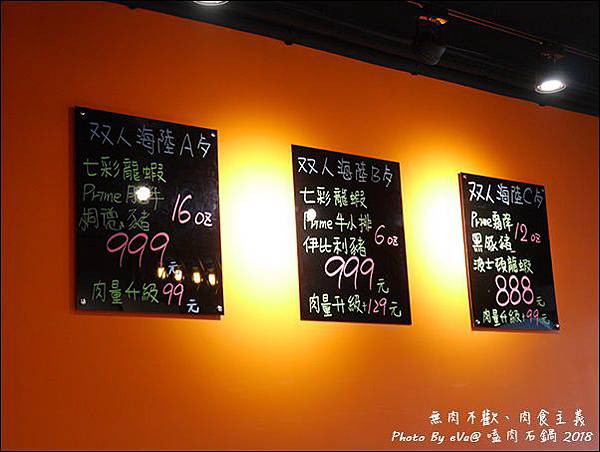 双人海陸A夕
七彩龍蝦
Prime 牛
豬
16oz
999元
肉量升級99元
双人海陸B夕
七彩龍蝦
Prime牛小排
伊比利豬
6oz
999元
肉量升級+129元
双人海陸C夕
Prime霜降
黑豚豬
12oz
波士頓龍蝦
888元
肉量升級+99元
無肉不歡、肉食主義
Photo By eVa@ 嗑肉石鍋 2018